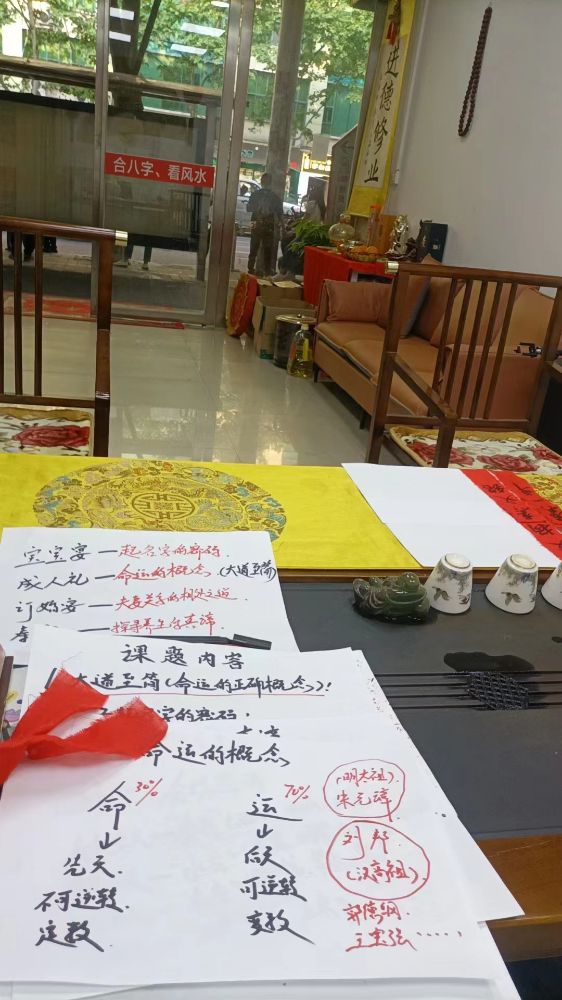 合八字、看风水
进德修业
宝宝宴—起名字的密码.
成人礼—命运的概念(大道至简)
订婚宴—夫妻关系的相处之道
寿
课题内容
大道至简(命运的正确概念)!
字的密码,
命运的概念
命30% 运70% (明太祖).朱元璋
先天. 后天 刘邦(汉高祖).
不可逆转. 可逆转 郭德纲
定数. 变数 王宝强......